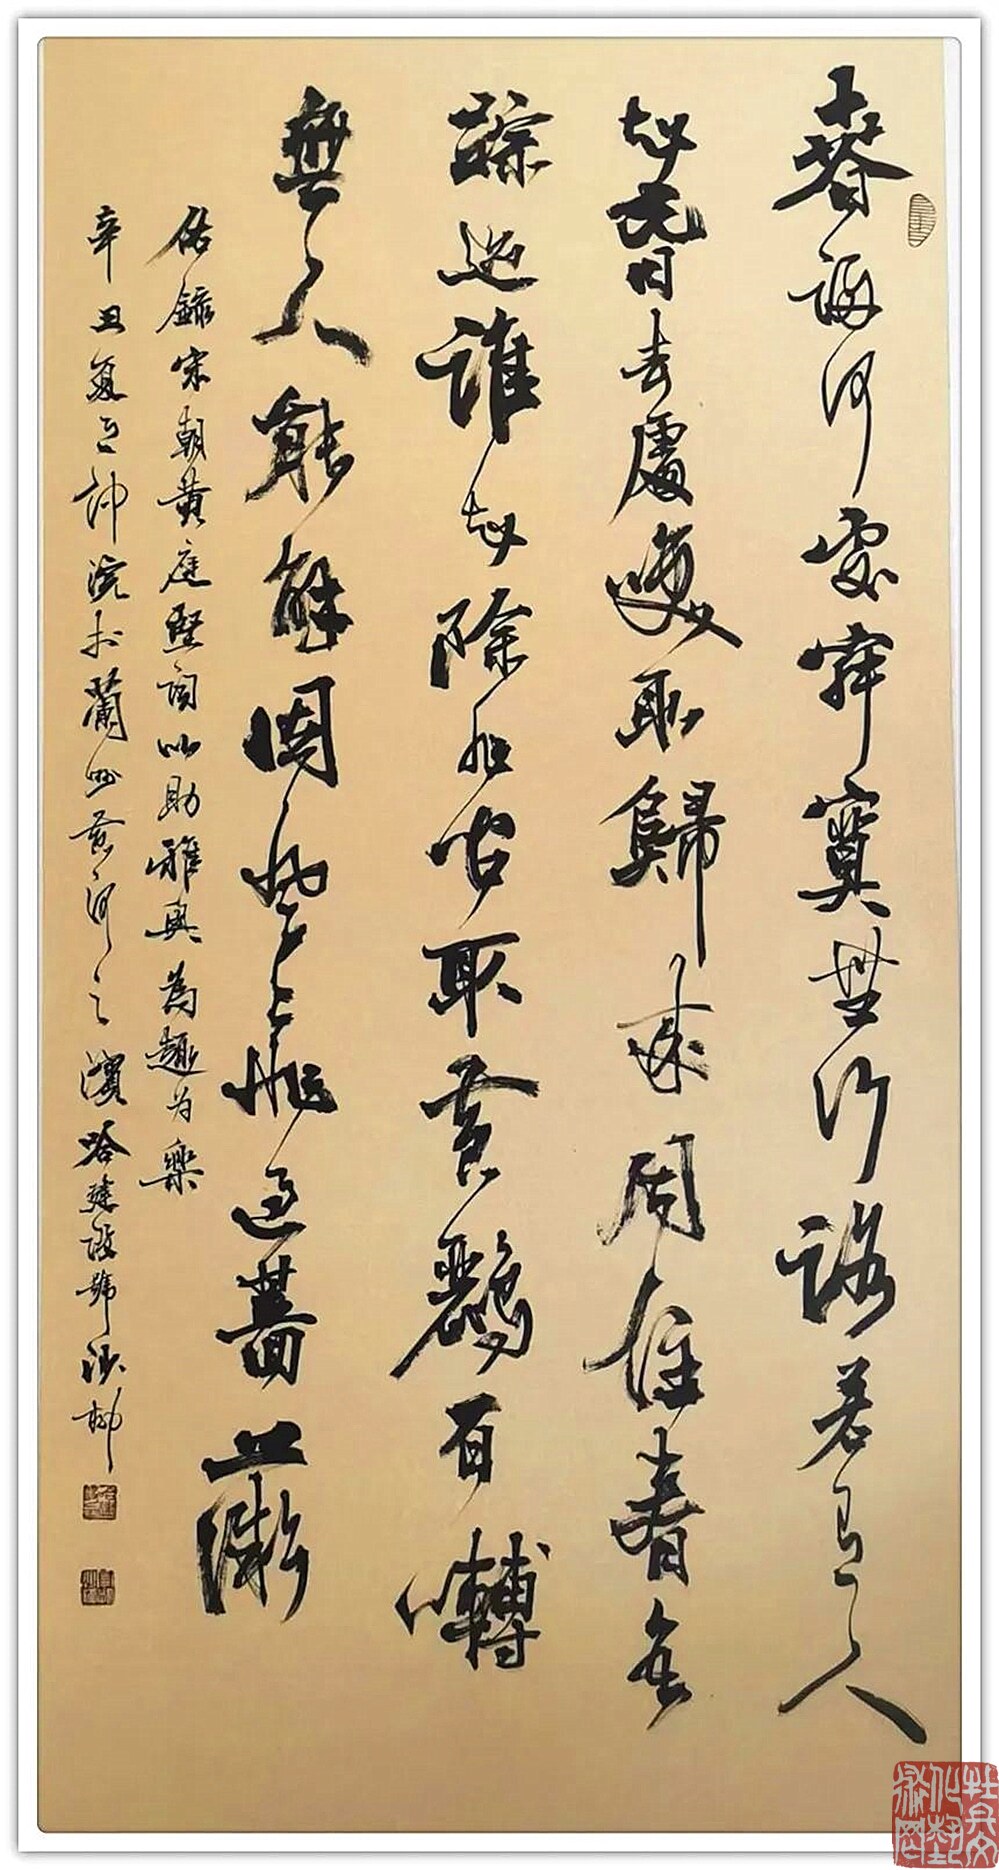 春歸何處寂寞無行路若有人
知春去處喚取歸來同住春無
蹤迹誰知除非問取黄鸝百囀
無人能解因風飛過薔薇
錄宋朝黄庭堅詞以助雅興為趣为樂
辛丑夏之浣於蘭州黄河之濱哈建設號沙柳